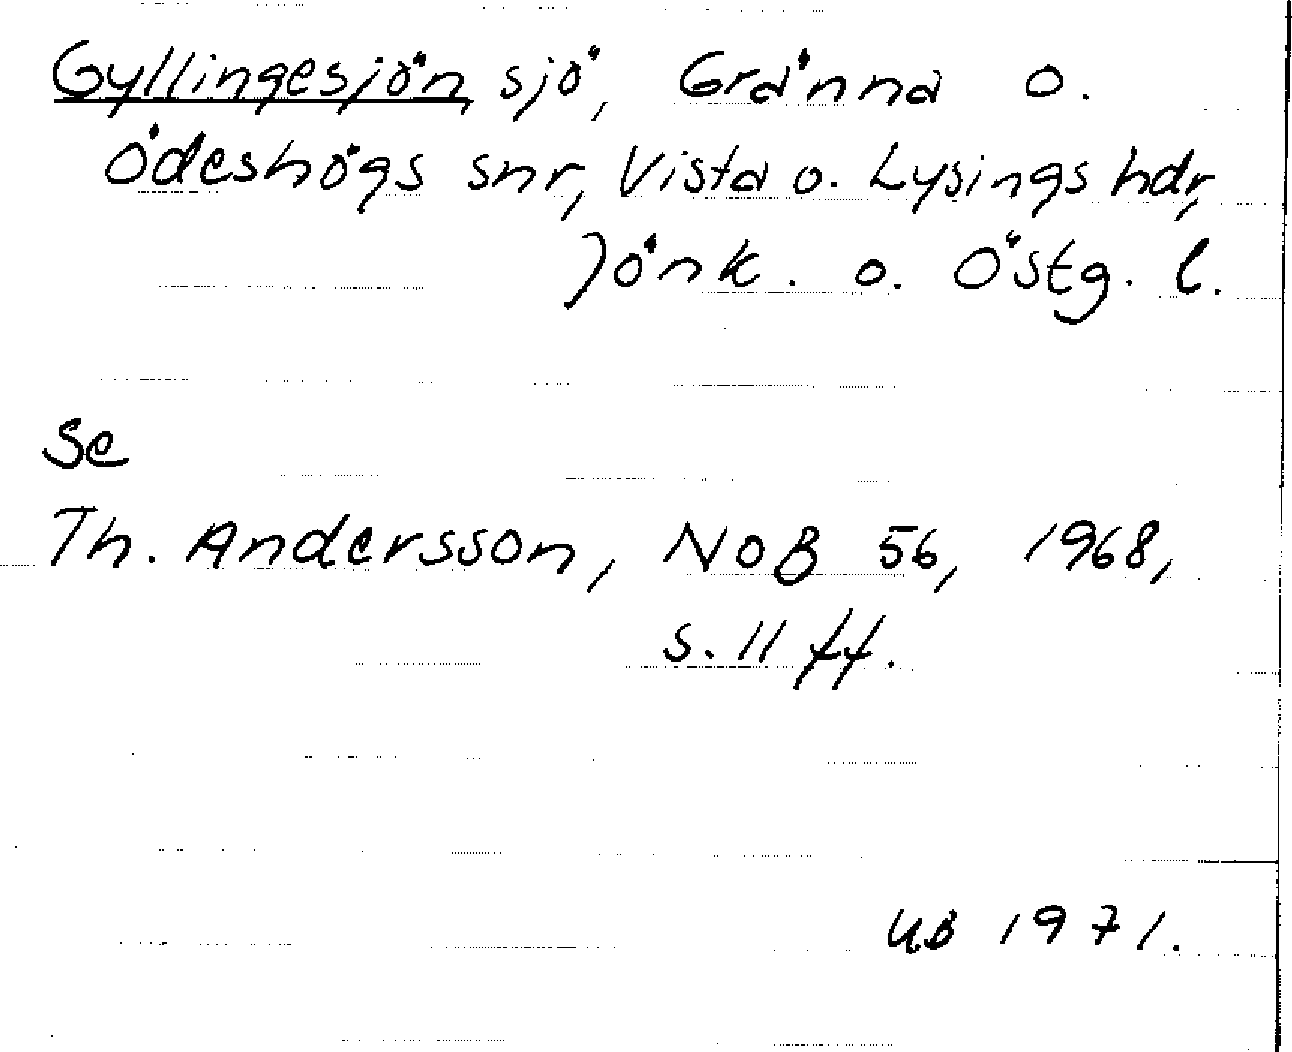 Gyllingesjön sjö, Gränna o.
Ödeshögs snr, Vista o. Lysings hdr,
Jönk. o. Östg. l.
Se
Th. Andersson, NoB 56, 1968,
s. 11 ff.
UB 1971.